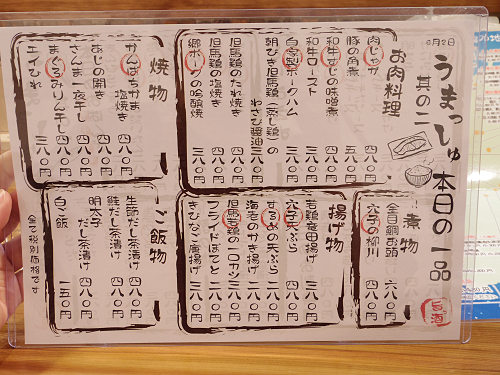 8月2日
うまっしゅ 本日の一品
其の二
お肉料理
肉じゃが 四八〇円
豚の角煮 五八〇円
和牛すじの味噌煮 四八〇円
和牛ロースト
自家製ポークハム 三八〇円
朝びき但馬鶏(蒸し鶏)の
わさび醤油 三三〇円
但馬鶏のたれ焼き 三八〇円
但馬鶏の塩焼き 三八〇円
郷ポークの吟醸焼 三八〇円
焼物
かんぱちかま塩焼き 四八〇円
あじの開き 四八〇円
さんま一夜干し 四八〇円
まぐろみりん干し 四八〇円
エイひれ 三八〇円
煮物
金目鯛お頭 六八〇円
穴子の柳川 四八〇円
揚げ物
若鶏竜田揚げ 三八〇円
穴子天ぷら 四八〇円
するめの天ぷら 四八〇円
海老のかき揚げ 四八〇円
但馬鶏の一口カツ 三八〇円
フライドぽてと 二八〇円
きびなご唐揚げ 三八〇円
ご飯物
生節だし茶漬け 四八〇円
鮭だし茶漬け 四八〇円
明太子だし茶漬け 四八〇円
白ご飯 一五〇円
全て税別価格です
旨酒